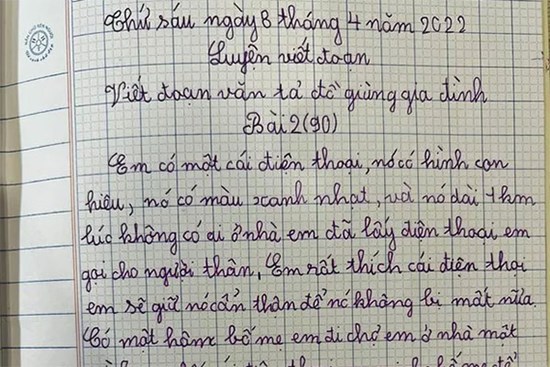 Thứ sáu ngày 8 tháng 4 năm 2022
Luyện viết đoạn
Viết đoạn văn tả đồ giùng gia đình
Bài 2 (90)
Em có một cái điện thoại, nó có hình con
hiêu, nó có màu xanh nhạt, và nó dài 1 hm
lúc không có ai ở nhà em đã lấy điện thoại em
gọi cho người thân, Em rất thích cái điện thọi
em sẽ giữ nó cẩn thân để nó không bị mất nữa.
Có một hôm bố mẹ em đi chợ em ở nhà một